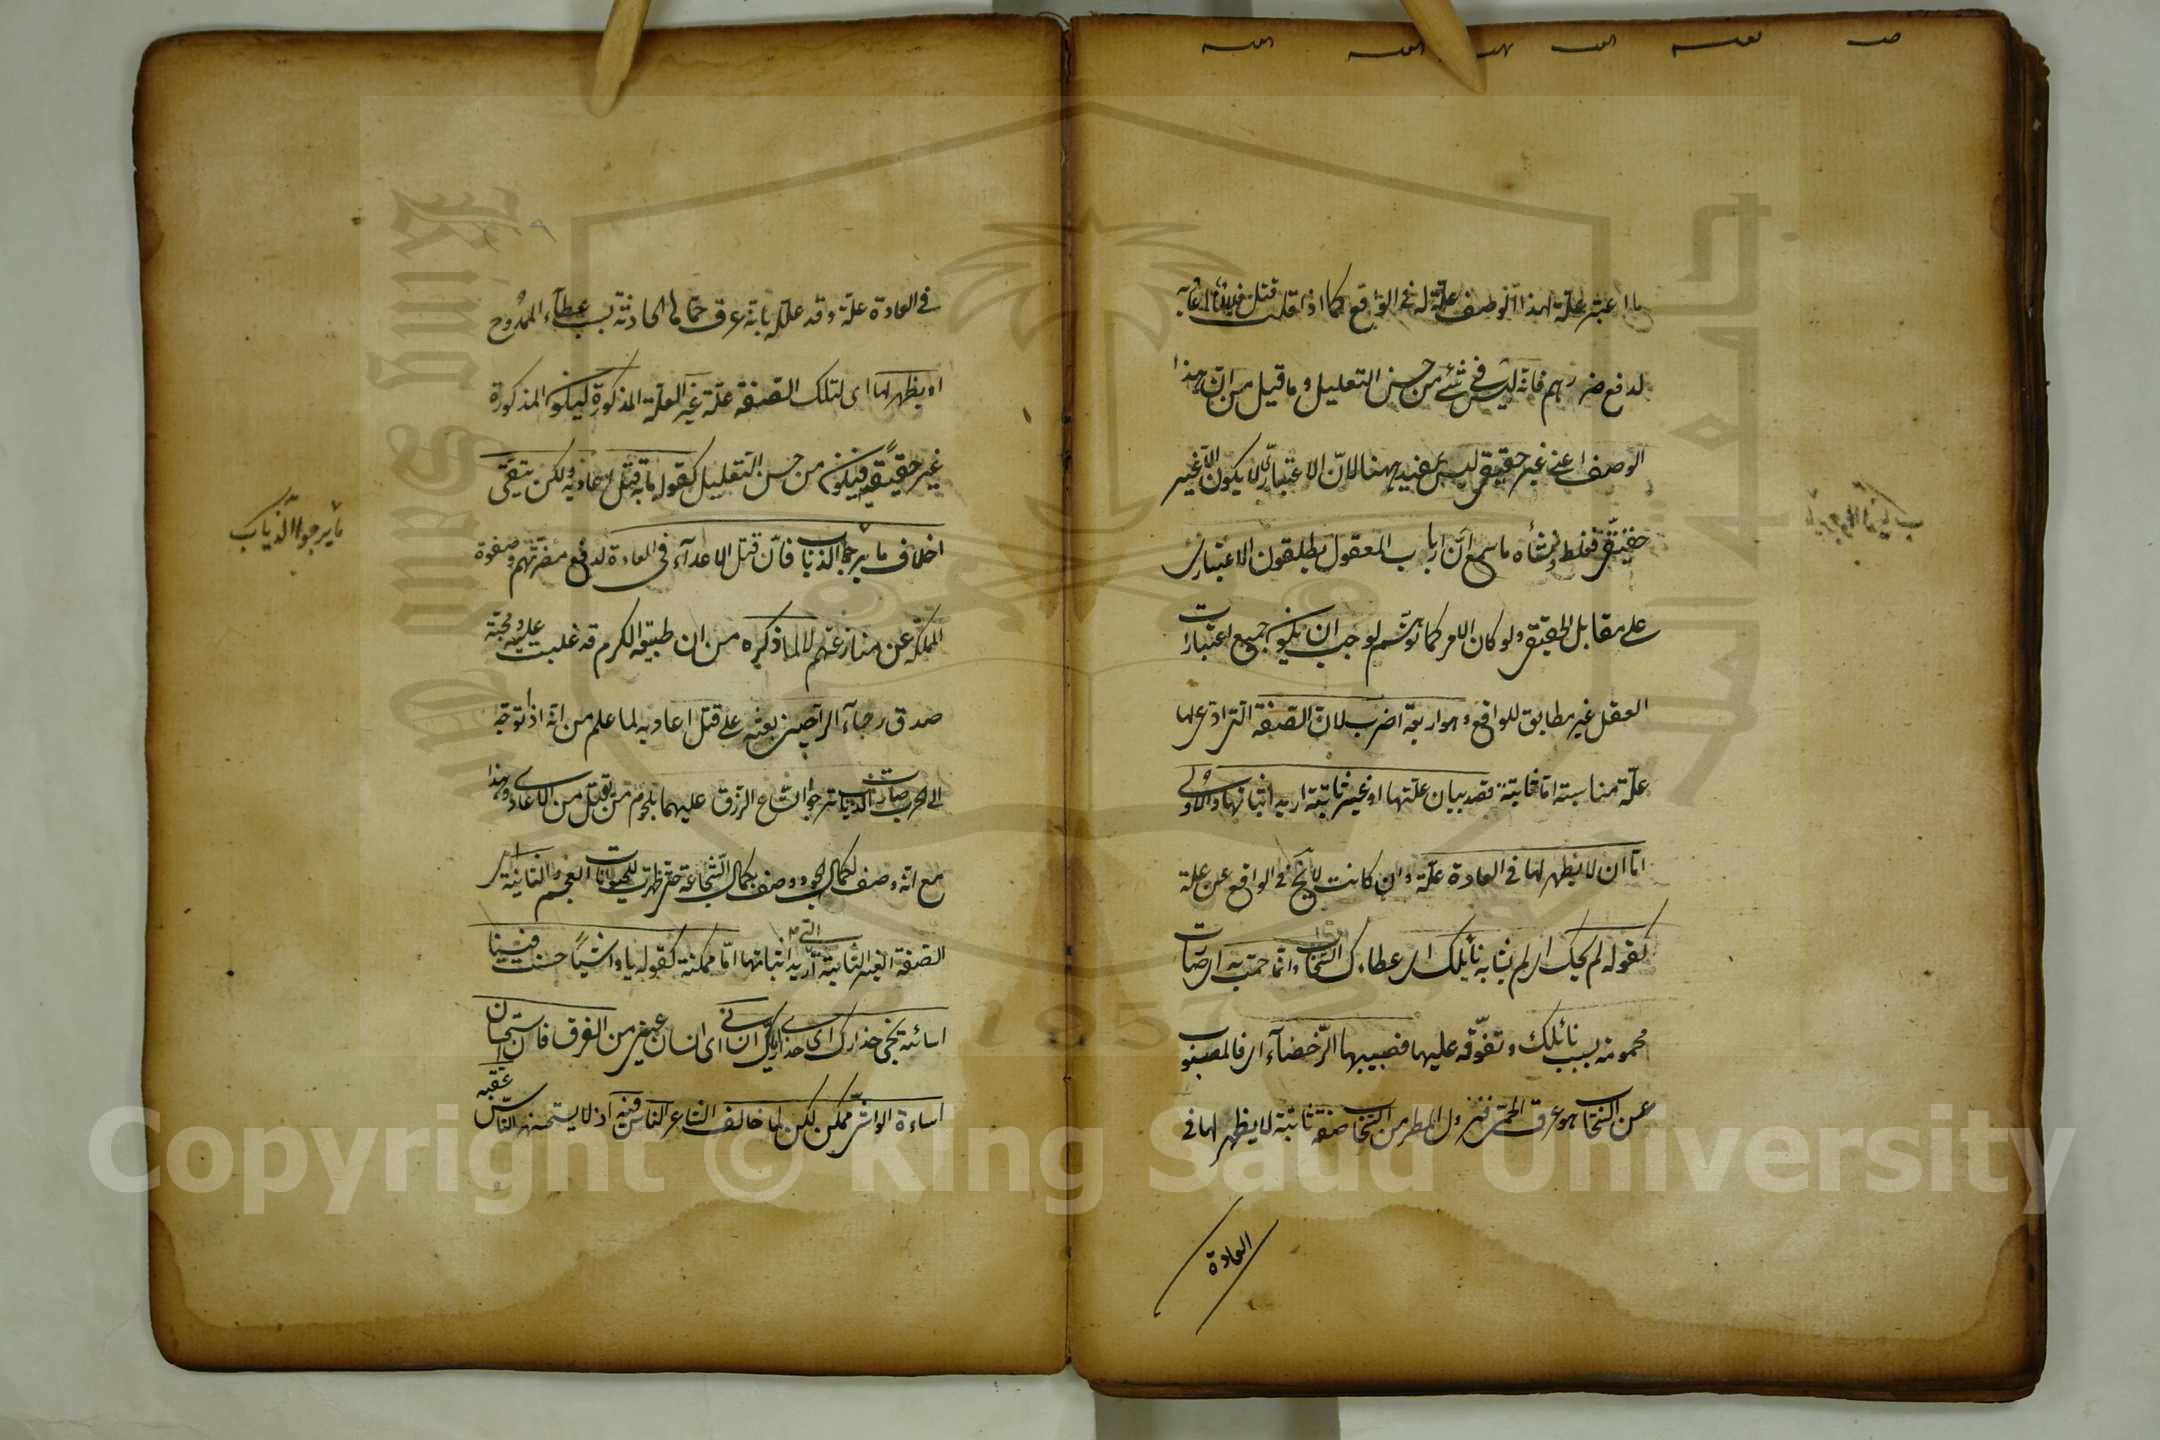 ما اعتبر علة لهذا الوصف علة له في الواقع كما اذا قلت قتل فلان اعاديه
لدفع ضررهم فانه ليس في شئ من حسن التعليل وما قيل من ان هذا
الوصف اعني غير حقيقي ليس بمفيد ههنا لان الاعتباري لا يكون الا غير
حقيقي فغلط ومنشأه ما سمع ان ارباب المعقول يطلقون الاعتباري
على مقابل الحقيقي ولو كان الامر كما توهم لوجب ان يكون جميع اعتبارات
العقل غير مطابق للواقع وهو اربعة اضرب لان الصفة التي ادعى لها
علة مناسبة اما ثابتة قصد بيان علتها او غير ثابتة اريد اثباتها والاولى
اما ان لا يظهر لها في العادة علة وان كانت لا تخ في الواقع عن علة
كقوله لم يحك اي لم يشابه نائلك اي عطاءك السحاب وانما حمت به اي صارت
محمومة بسبب نائلك وتفوقه عليها فصبيبها الرخصاء اي فالمصبوب
من السحاب هو عرق الحمى فنزول المطر من السحاب صفة ثابتة لا يظهر لها في
العادة
في العادة علة وقد علله بانه عرق حماها الحادثة بسبب عطاء الممدوح
او يظهر لها اي لتلك الصفة علة غير العلة المذكورة ليكون المذكورة
غير حقيقية فيكون من حسن التعليل كقوله ما به قتل اعاديه ولكن يتقي
اخلاف ما يرجوا الذياب فان قتل الاعداء في العادة لدفع مضرتهم وصفوة
المملكة عن منازعتهم لا لما ذكره من ان طبيعة الكرم قد غلبت عليه ومحبة
صدق رجاء الراجين بعثته على قتل اعاديه لما علم من انه اذا توجه
الى الحرب صارت الذياب ترجوا اتساع الرزق عليها بلحوم من يقتل من الاعادي وهذا
مع انه وصف لكمال الجود وصف بكمال الشجاعة حتى ظهرت للحيوانات العجم والثانية اي
الصفة الغير الثابتة التي اريد اثباتها اما ممكنة كقوله يا واشيا حسنت فينا
اسائته نجى حذارك اي حذاري اياك انساني اي انسان عيني من الغرق فان استحسان
اساءة الواشي ممكن لكن لما خالف الشاعر الناس فيه اذ لا يستحسنه الناس عقبه
ما يرجوا الذياب